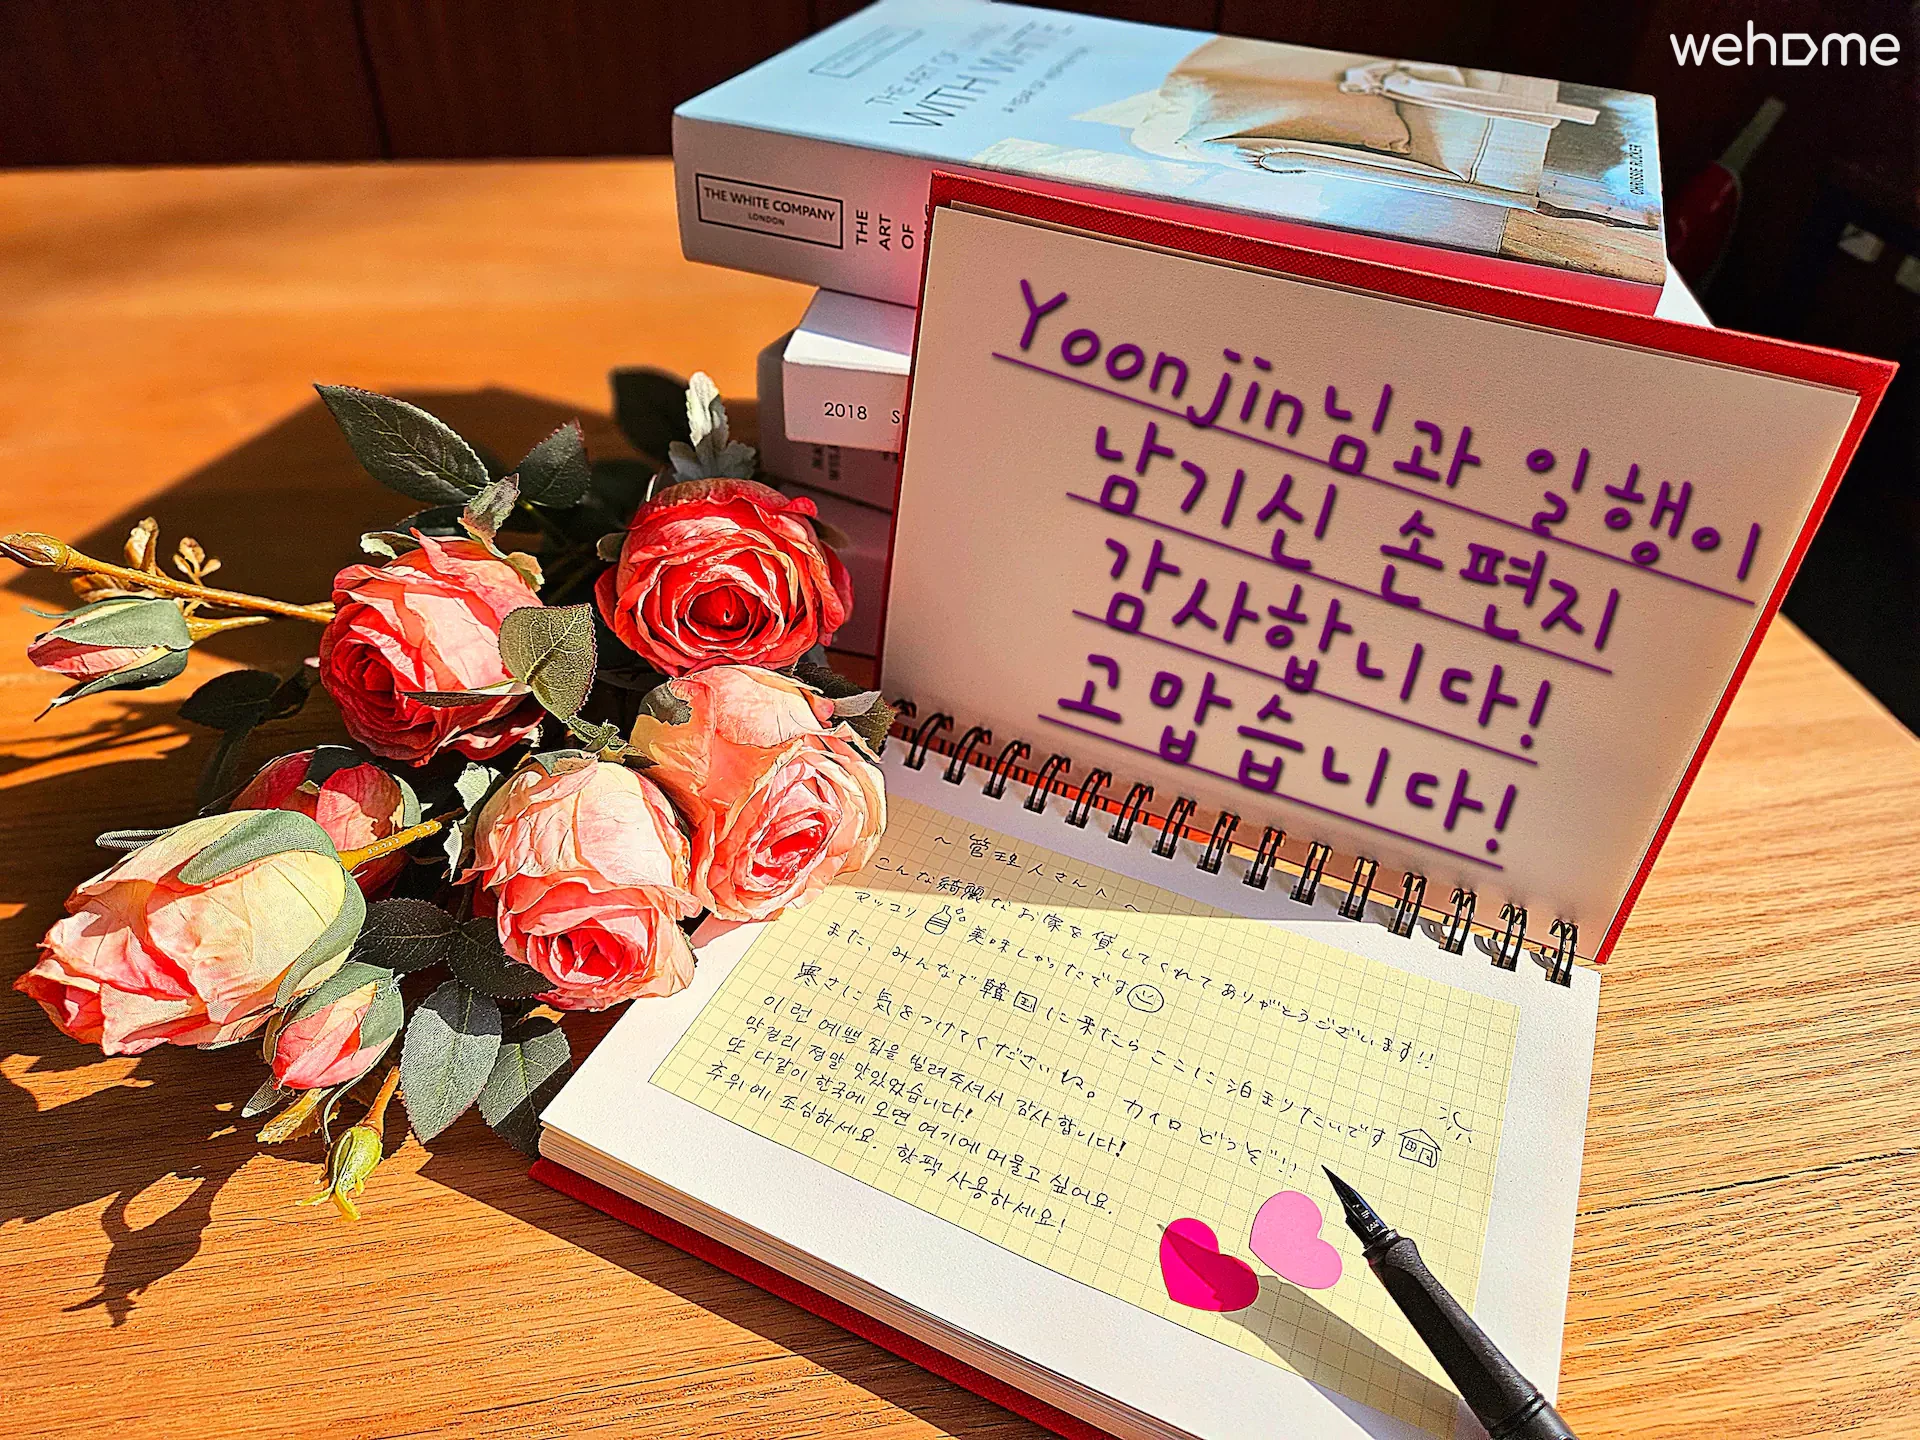 wehome
THE ART OF
WITH WHITE
CHRISSIE RUCKER
THE WHITE COMPANY
LONDON
THE
ART
OF
2018
Yoonjin님과 일행이
남기신 손편지
감사합니다!
고맙습니다!
~ 管理人さんへ ~
こんな綺麗なお家を貸してくれてありがとうございます!!
マッコリ 美味しかったです
また、みんなで韓国に来たらここに泊まりたいです
寒さに気をつけてくださいね。 カイロどうぞ!!
이런 예쁜 집을 빌려주셔서 감사합니다!
막걸리 정말 맛있었습니다!
또 다같이 한국에 오면 여기에 머물고 싶어요.
추위에 조심하세요. 핫팩 사용하세요!